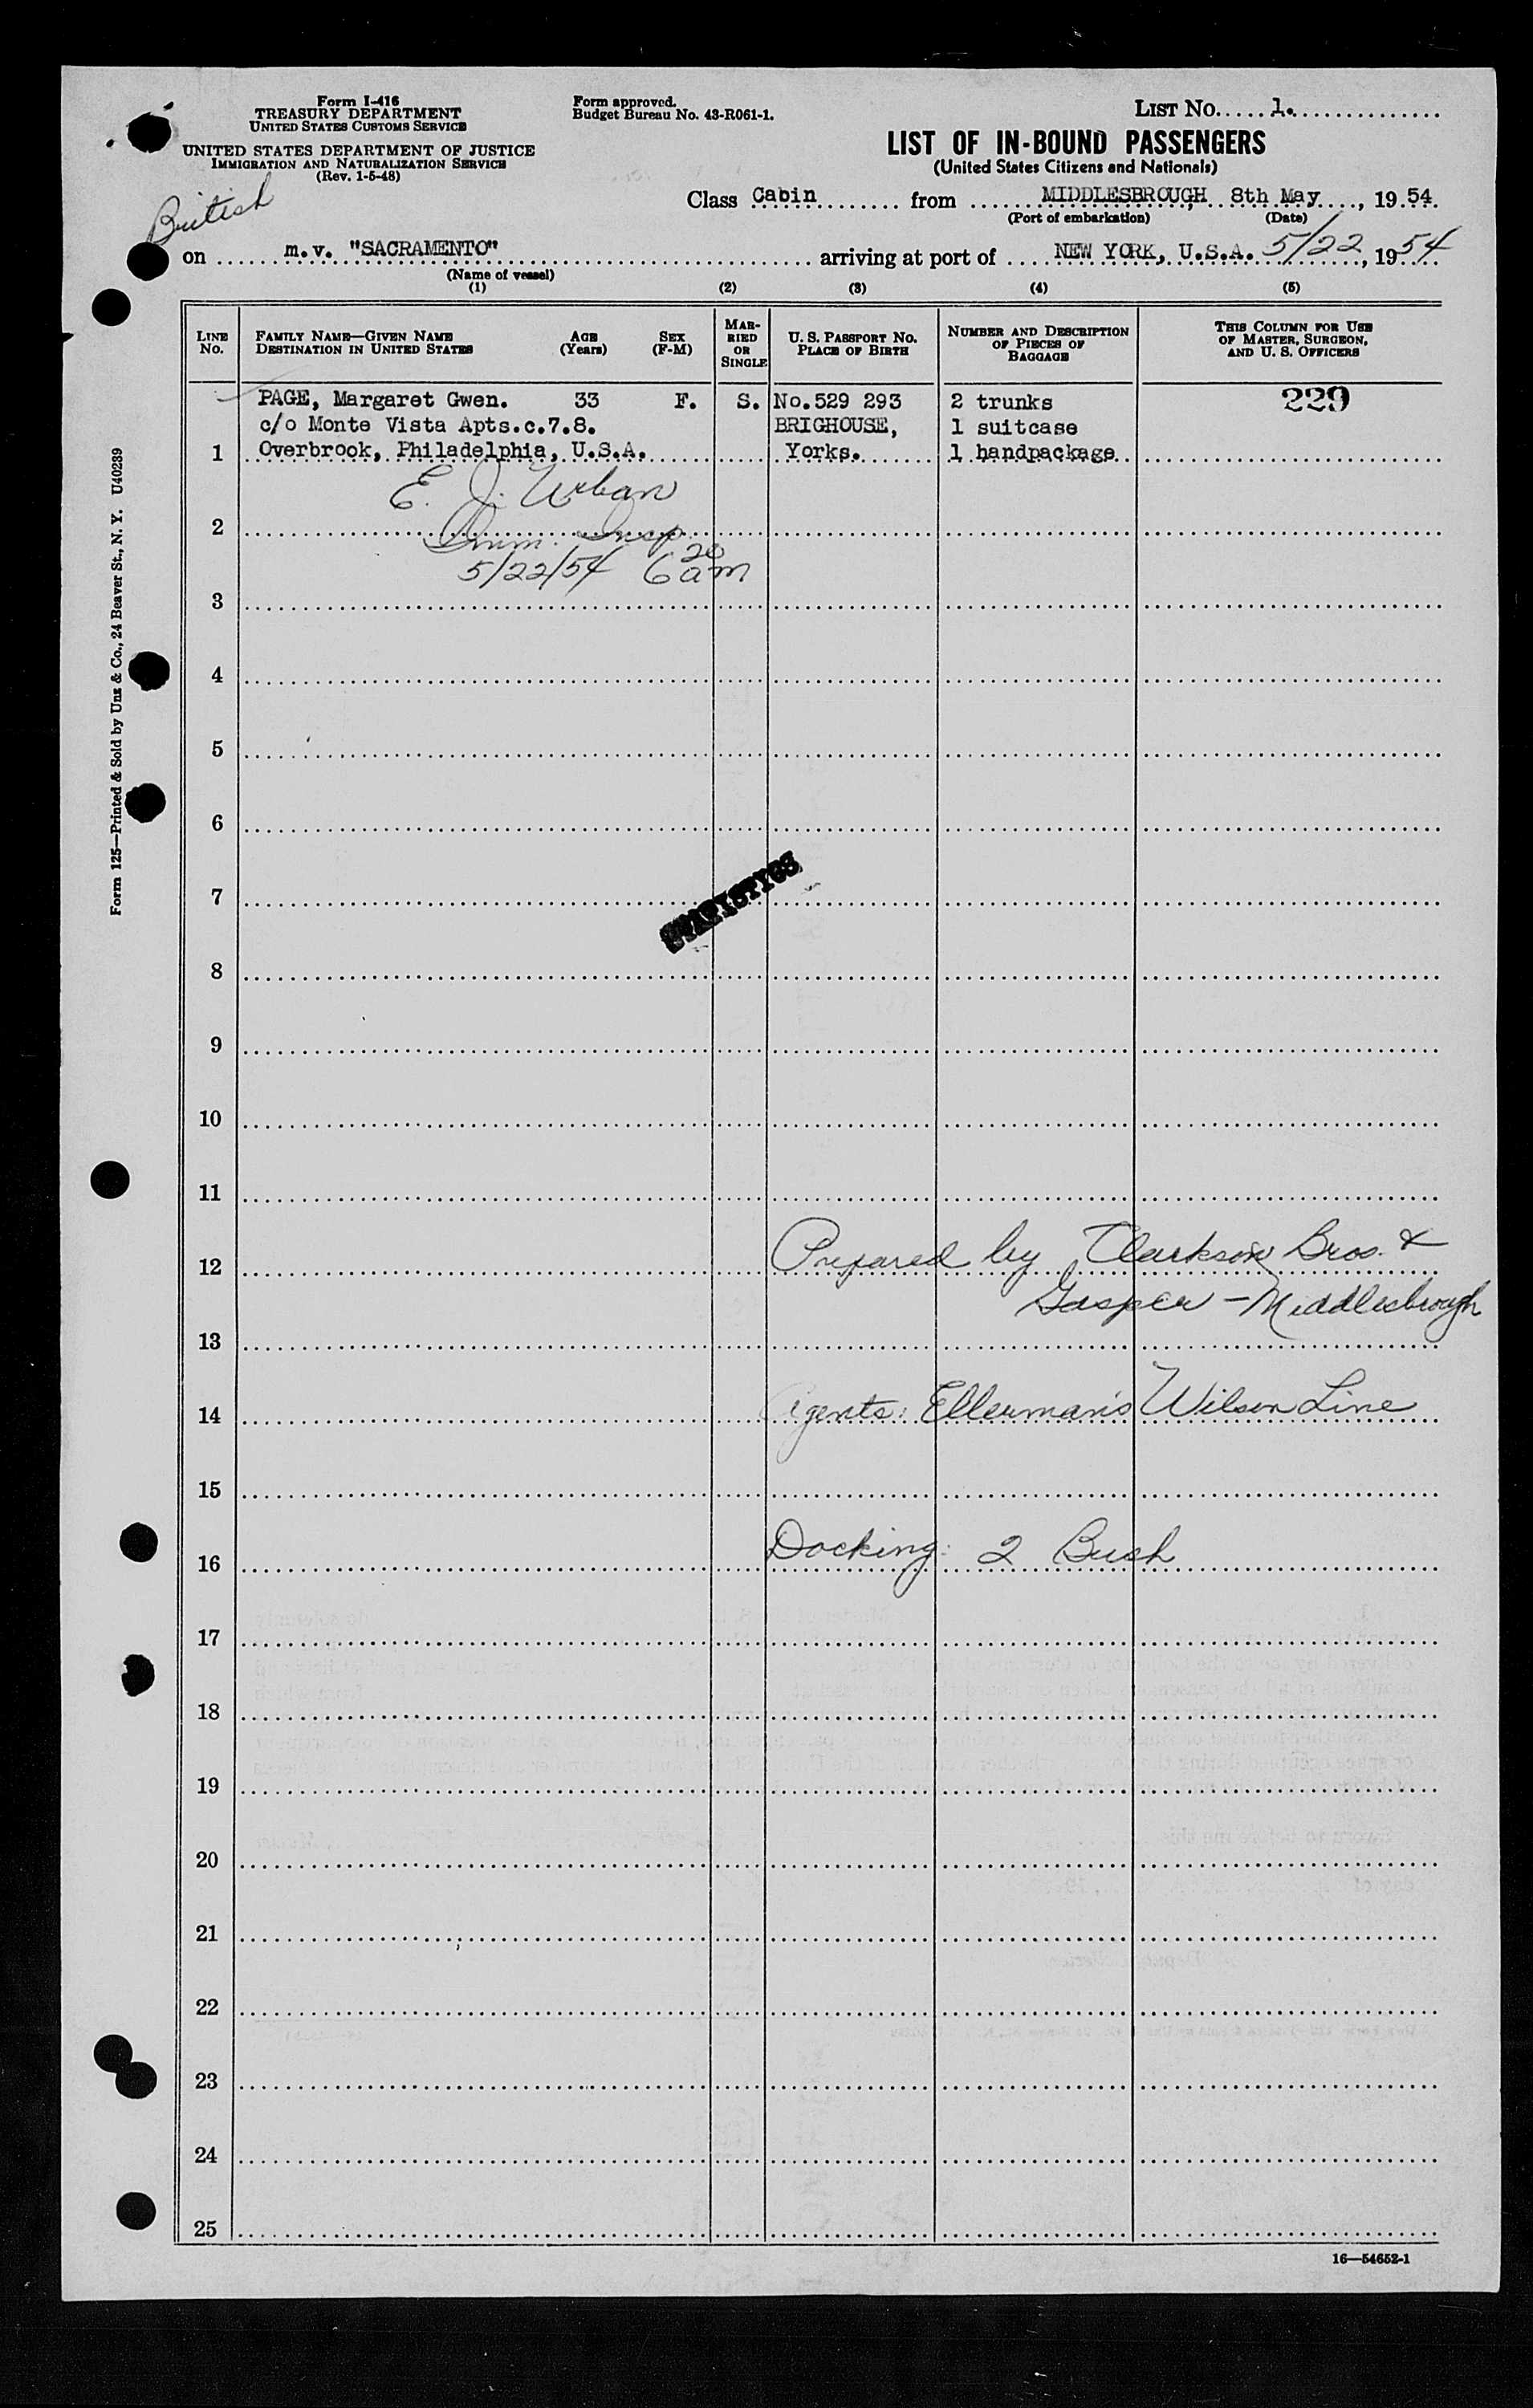 Form I-416
TREASURY DEPARTMENT
UNITED STATES CUSTOMS SERVICE
UNITED STATES DEPARTMENT OF JUSTICE
IMMIGRATION AND NATURALIZATION SERVICE
(Rev. 1-5-48)
Form approved.
Budget Bureau No. 43-R061-1.
LIST No. 1.
LIST OF IN-BOUND PASSENGERS
(United States Citizens and Nationals)
British
Class Cabin from MIDDLESBROUGH, 8th May, 19 54.
(Port of embarkation) (Date)
on m.v. "SACRAMENTO" arriving at port of NEW YORK, U.S.A. 5/22, 19 54
(Name of vessel)
(1) (2) (3) (4) (5)
LINE No. FAMILY NAME—GIVEN NAME DESTINATION IN UNITED STATES AGE (Years) SEX (F-M) MARRIED OR SINGLE U. S. PASSPORT No. PLACE OF BIRTH NUMBER AND DESCRIPTION OF PIECES OF BAGGAGE THIS COLUMN FOR USE OF MASTER, SURGEON, AND U. S. OFFICERS
PAGE, Margaret Gwen. 33 F. S. No.529 293 2 trunks 229
c/o Monte Vista Apts.c.7.8. BRIGHOUSE, 1 suitcase
1 Overbrook, Philadelphia, U.S.A. Yorks. 1 handpackage
E. J. Urban
2 Imm. Insp.
5/22/54 6 20 am
3
4
5
6
7
STATISTICS
8
9
10
11
12 Prepared by Clarkson Bros. &
Gasper - Middlesbrough
13
14 Agents: Ellerman's Wilson Line
15
16 Docking: 2 Bush
17
18
19
20
21
22
23
24
25
16—54652-1
Form 125—Printed & Sold by Unz & Co., 24 Beaver St., N. Y. U40239